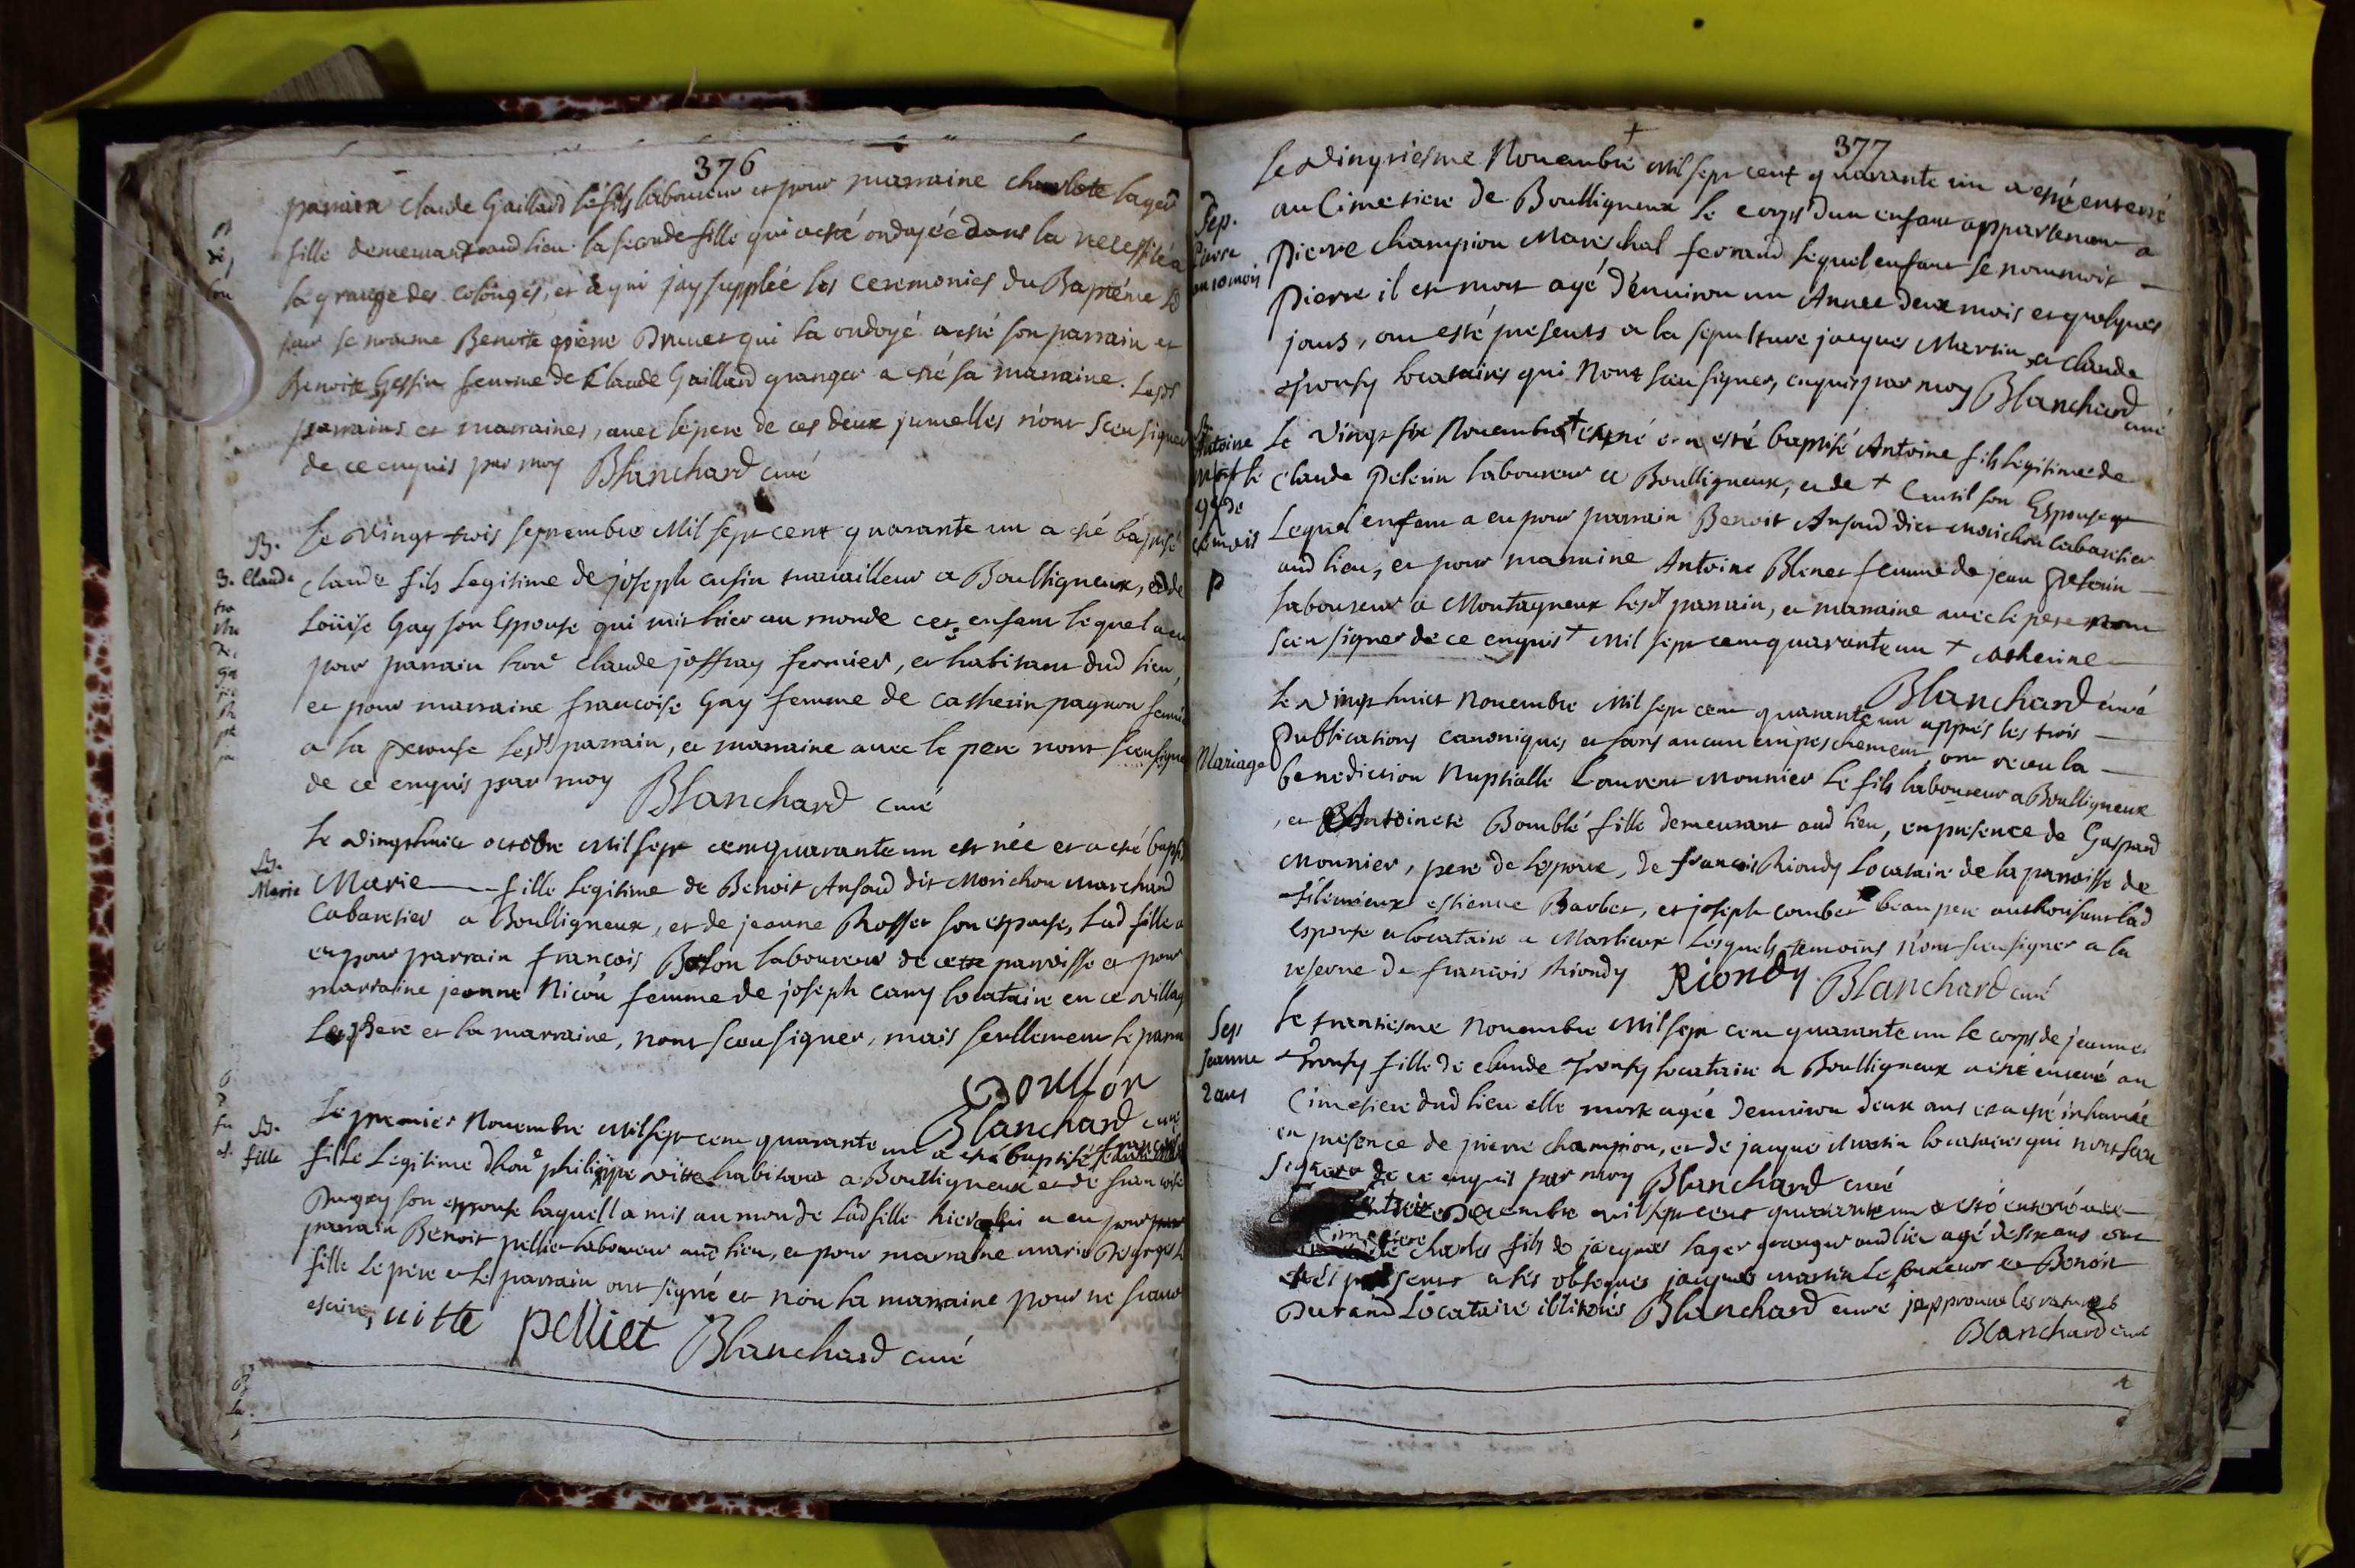 376
parrain claude Gaillard le fils laboureur et pour marraine charlote lager
fille demeurant aud lieu la seconde fille qui a esté ondoyée dans la necessité a
la grange des colonges, et a qui jay supplée les ceremonies du Baptéme
se nomme Benoite pierre Druner qui la ondoyé a esté son parrain et
Benoite femme de Claude Gaillard granger a esté sa marraine. Lesds
parrains et marraines, avec le pere de ces deux jumelles n'ont sceu signer
de ce enquis par moy Blanchard curé
B.
Claude
Le vingt trois septembre Mil sept cent quarante un a esté baptisé
Claude fils Legitime de joseph cusin travailleur a Boulligneux, et de
Loüise Gay son Epouse qui mit hier au monde cet enfant lequel a eu
pour parrain hon^e claude joffray fermier, et habitant dud lieu,
et pour marraine francoise Gay femme de catherin pagnon
a la perouse lesd^t parrain, et marraine avec le pere nont sceu signer
de ce enquis par moy Blanchard curé
B.
Marie
Le vingthuict octobre Mil sept cent quarante un est née et a esté
Marie fille Legitime de Benoit Ansaud dit Morichon marchand
Cabaretier a Boulligneux, et de jeanne Rosset son espouse, Lad fille a
eu pour parrain francois laboureur de cette parroisse et pour
marraine jeanne Nicou femme de joseph cany locataire en ce village
Le pere et la marraine, nont sceu signer, mais seullement le
Blanchard curé
B.
fille
Le premier Novembre Mil sept cent quarante un a esté baptisé
fille Legitime d'hon^e philippe vitte habitant a Boulligneux et de francoise
son espouse laquell a mis au monde Lad fille hier a eu pour
parrain Benoit pelliet laboureur aud lieu, et pour marraine marie
fille le pere et le parrain ont signé et non la marraine pour ne
escrire, vitte pelliet Blanchard curé
377
Le vingtiesme Novembre Mil sept cent quarante un a esté enterré
au Cimetiere de Boulligneux le corps d'un enfant appartenant a
Pierre Champion Mareschal ferrand lequel enfant se nommoit
Pierre il est mort agé d'environ un Année deux mois et quelques
jours, ont esté presents a la sepulture jacques Martin et claude
locataires qui Nont sceu signer, enquis par moy Blanchard
curé
Sep.
Pierre
Antoine
mort le
Le vingt six Novembre + est né et a esté baptisé Antoine fils legitime de
Claude Pelerin laboureur a Boulligneux, et de + son Espouse
Lequel enfant a eu pour parrain Benoit Ansaud dict Morichon cabaretier
aud lieu, et pour marraine Antoine Blenet femme de jean Pelerin
laboureur a Montagneux lesd^t parrain, et marraine avec le pere nont
sceu signer de ce enquis + Mil sept cent quarante un + catherine
Blanchard curé
Mariage
Le vingt huict Novembre Mil sept cent quarante un apprés les trois
publications canoniques et sans aucun empeschement, ont receu la
benediction Nuptialle Laurent Monnier le fils laboureur a Boulligneux
et Antoinete Bomblé fille demeurant aud lieu, en presence de Gaspard
Monnier, pere de l'epoux, de francois Riondy locataire de la paroisse de
estienne Barbet, et joseph combet beau pere authorisant lad
espouse et locataire a Marlieux Lesquels temoins n'ont sceu signer a la
reserve de francois Riondy Riondy Blanchard curé
Sep
jeanne
2 ans
Le trantiesme Novembre Mil sept cent quarante un le corps de jeanne
fille de claude locataire a Boulligneux a esté enterré au
Cimetiere dud lieu elle mort agée d'environ deux ans et a esté inhumée
en presence de pierre champion, et de jacque Martin locataires qui nont sceu
signer de ce enquis par moy Blanchard curé
Decembre mil sept cent quarante un a esté enterré
Cimetiere Charles fils de jacques lager granger aud lieu agé de six ans ont
estés presents a ses obseques jacques martin et Benoit
Durand Locataire illiterés Blanchard curé japprouve les ratures
Blanchard curé